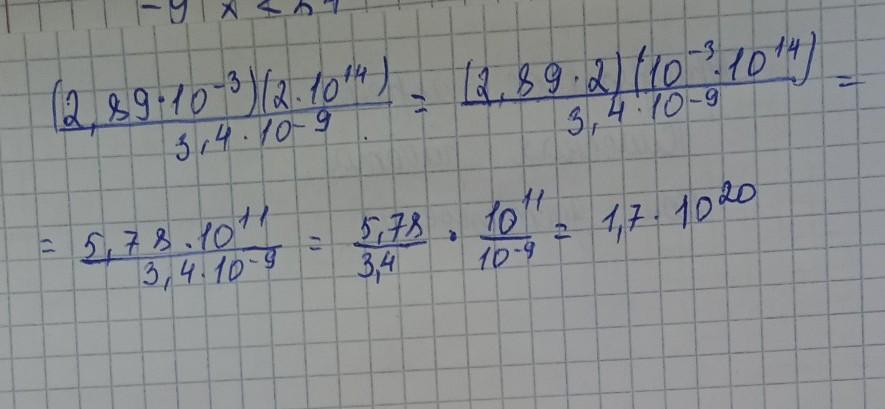 -9 x <
(2,89·10⁻³)(2·10¹⁴) / 3,4·10⁻⁹ = (2,89·2)(10⁻³·10¹⁴) / 3,4·10⁻⁹ =
= 5,78·10¹¹ / 3,4·10⁻⁹ = 5,78 / 3,4 · 10¹¹ / 10⁻⁹ = 1,7·10²⁰